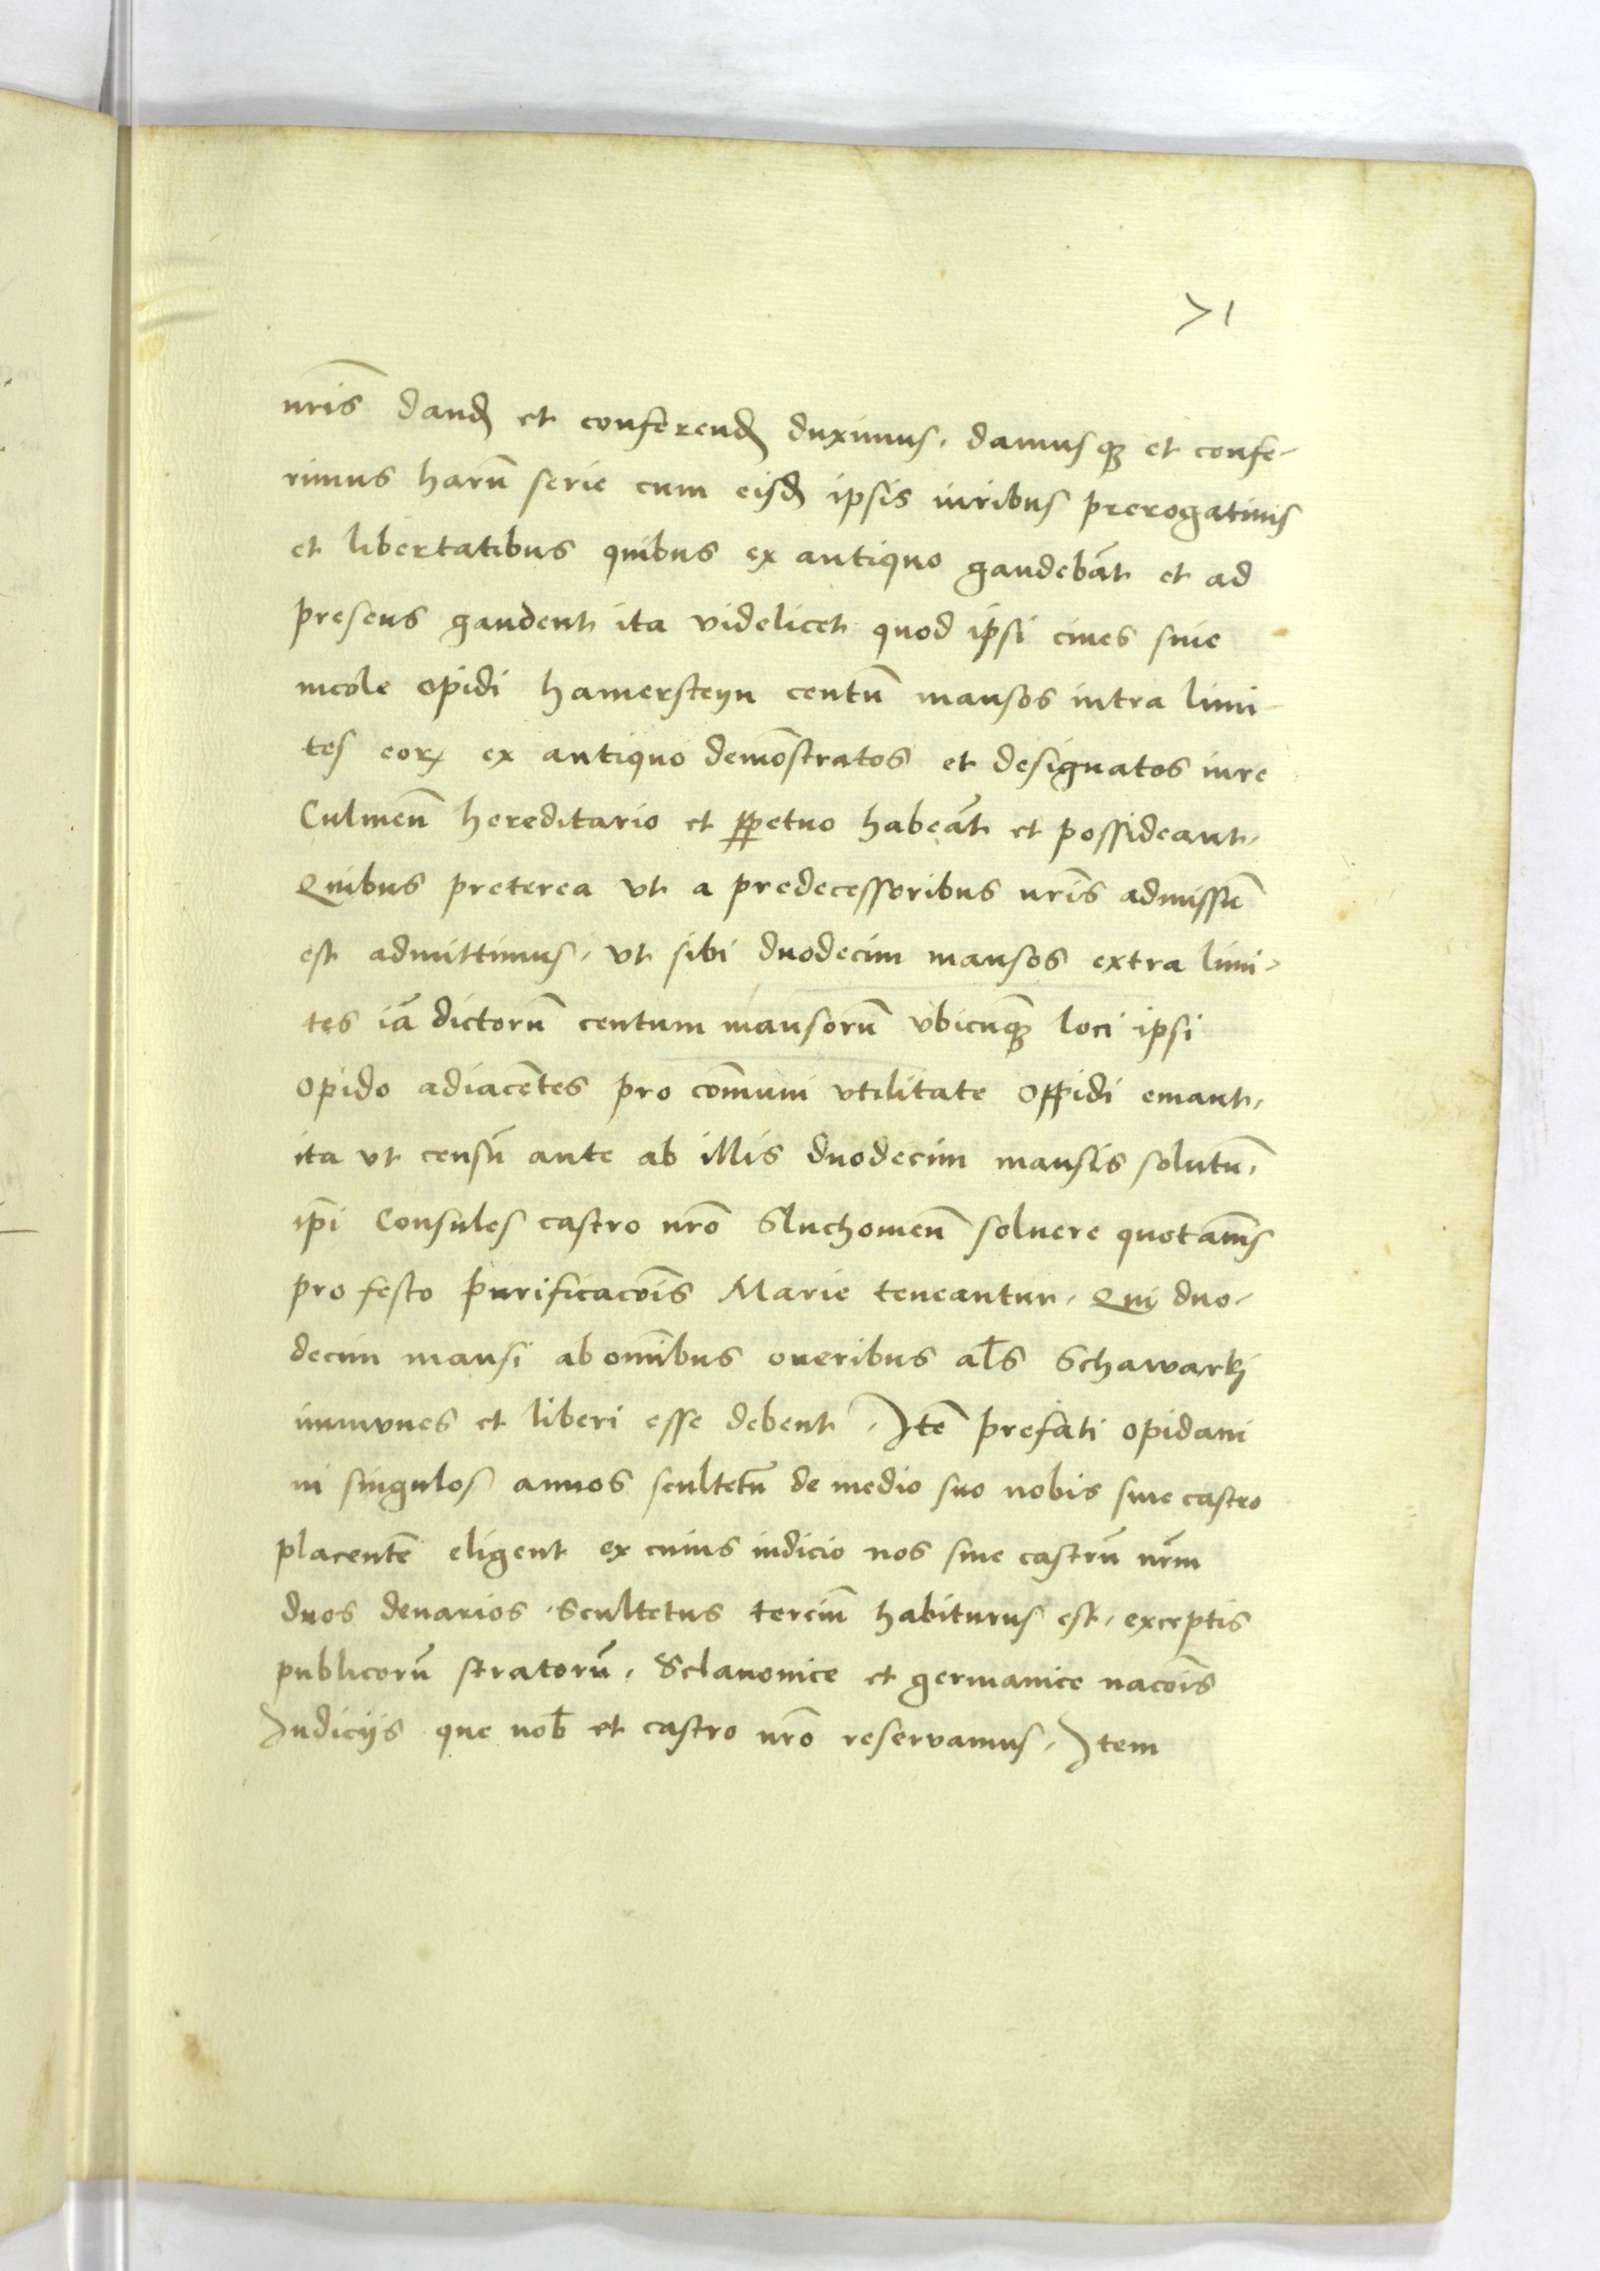 71
nr̃is dand et conferend duximus, damusq et confe-
rimus harũ serie cum eisd ipsis iuribus prerogatiuis
et libertatibus quibus ex antiquo gaudebãt et ad
presens gaudent ita videlicet quod ipsi ciues siue
incole opidi hamersteyn centũ mansos intra limi-
tes eorꝝ ex antiquo demõstratos et designatos iure
Culmeñ hereditario et ꝑpetuo habeãt et possideant,
Quibus preterea vt a predecessoribus nr̃is admissũ
est admittimus, vt sibi duodecim mansos extra limi-
tes iã dictorũ centum mansorũ vbicũq loci ipsi
opido adiacẽtes pro cõmuni vtilitate oppidi emant,
ita vt censũ ante ab illis duodecim mansis solutũ,
ip̃i Consules castro nr̃o Sluchomeñ soluere quotãnis
pro festo purificacõis Marie teneantur, Qui duo-
decim mansi ab oĩnibus oneribus al̃s Scharwarkj
immunes et liberi esse debent, Itẽ prefati opidani
in singulos annos scultetũ de medio suo nobis siue castro
placentẽ eligent ex cuius iudicio nos siue castrũ nr̃m
duos denarios, Scultetus terciũ habiturus est, exceptis
publicorũ stratorũ, Sclauonice et germanice nacõis
Iudicijs que nob̃ et castro nr̃o reservamus, Item